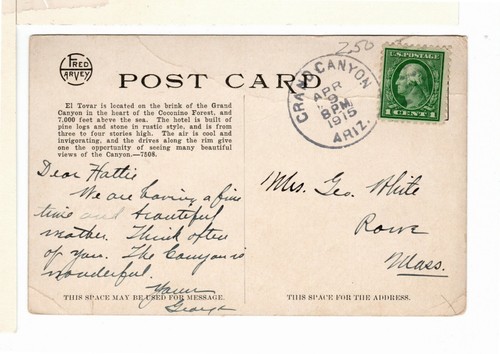 250
FRED
HARVEY
POST CARD
GRAND CANYON
APR
9
8PM
1915
ARIZ.
U.S. POSTAGE
1 CENT 1
El Tovar is located on the brink of the Grand
Canyon in the heart of the Coconino Forest, and
7,000 feet above the sea. The hotel is built of
pine logs and stone in rustic style, and is from
three to four stories high. The air is cool and
invigorating, and the drives along the rim give
one the opportunity of seeing many beautiful
views of the Canyon.—7508.
Dear Hattie
We are having a fine
time and beautiful
weather. Think often
of you. The Canyon is
wonderful.
Yours
George
Mrs. Geo. White
Rowe
Mass.
THIS SPACE MAY BE USED FOR MESSAGE.
THIS SPACE FOR THE ADDRESS.